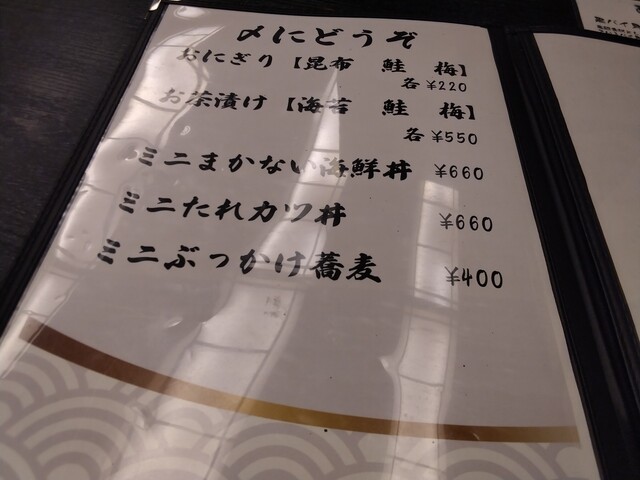 〆にどうぞ
おにぎり【昆布 鮭 梅】
各 ¥220
お茶漬け【海苔 鮭 梅】
各 ¥550
ミニまかない海鮮丼 ¥660
ミニたれカツ丼 ¥660
ミニぶっかけ蕎麦 ¥400